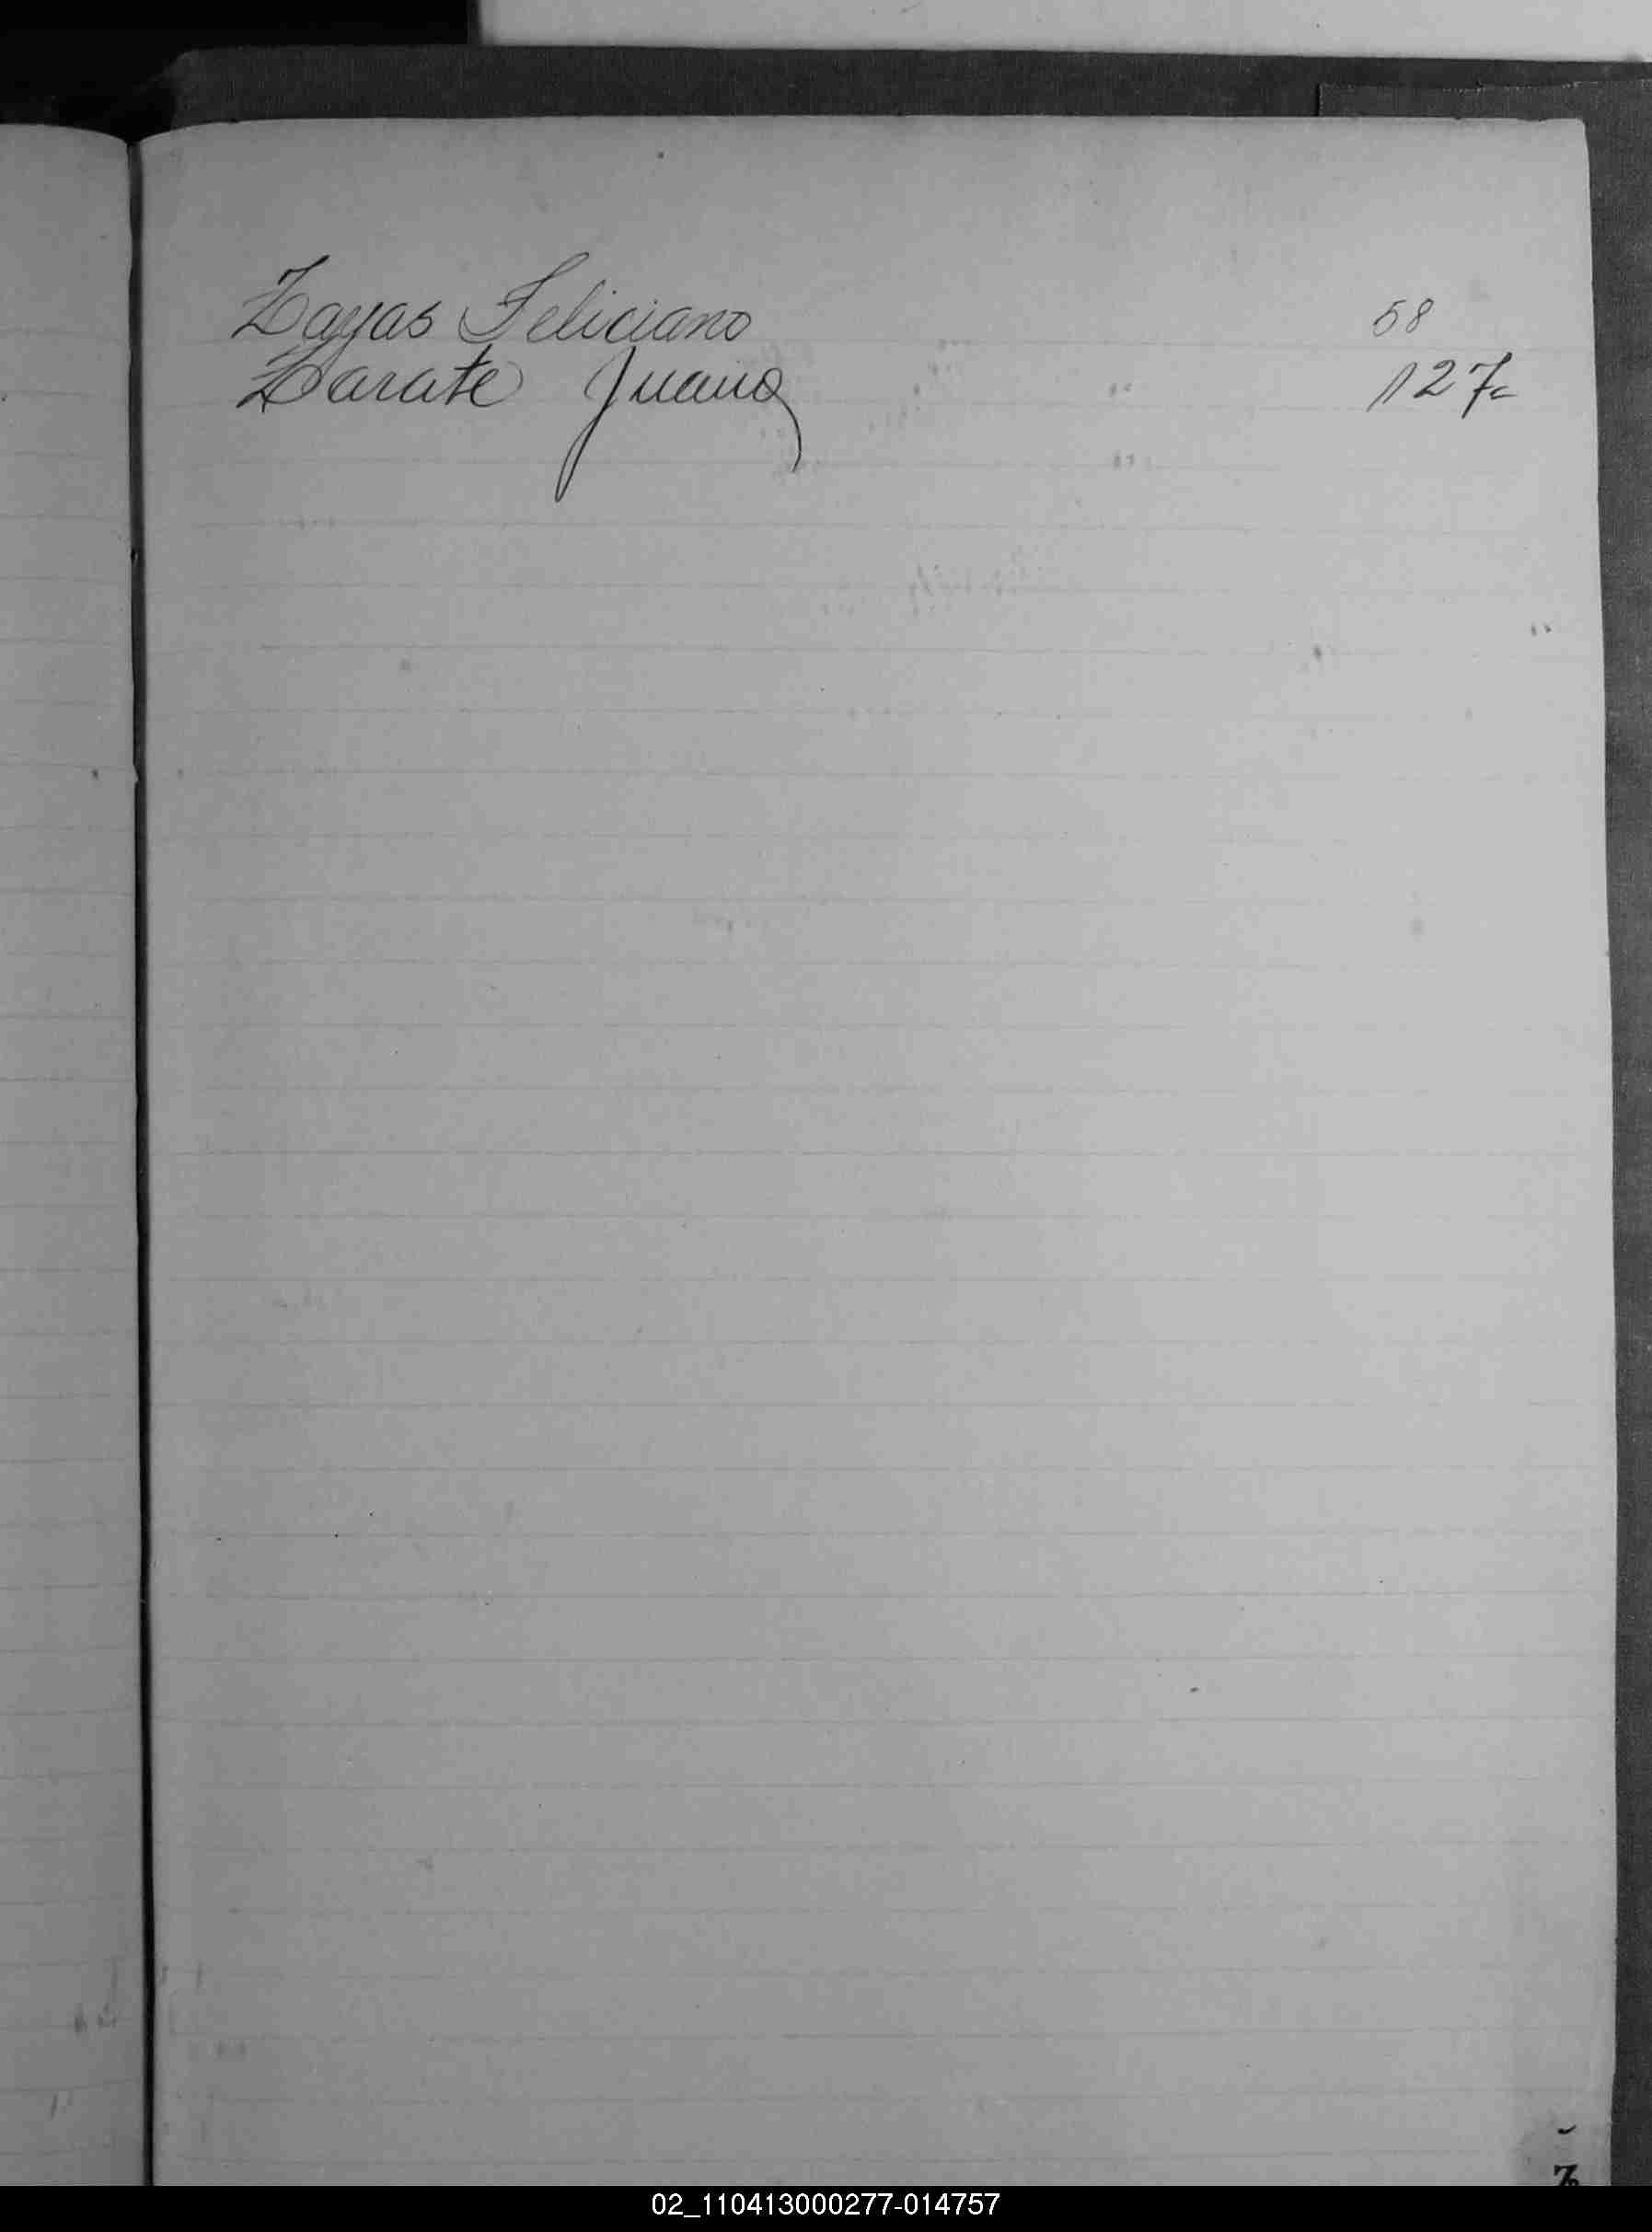 Zayas Feliciano 58
Zarate Juana 127
Z
02_110413000277-014757